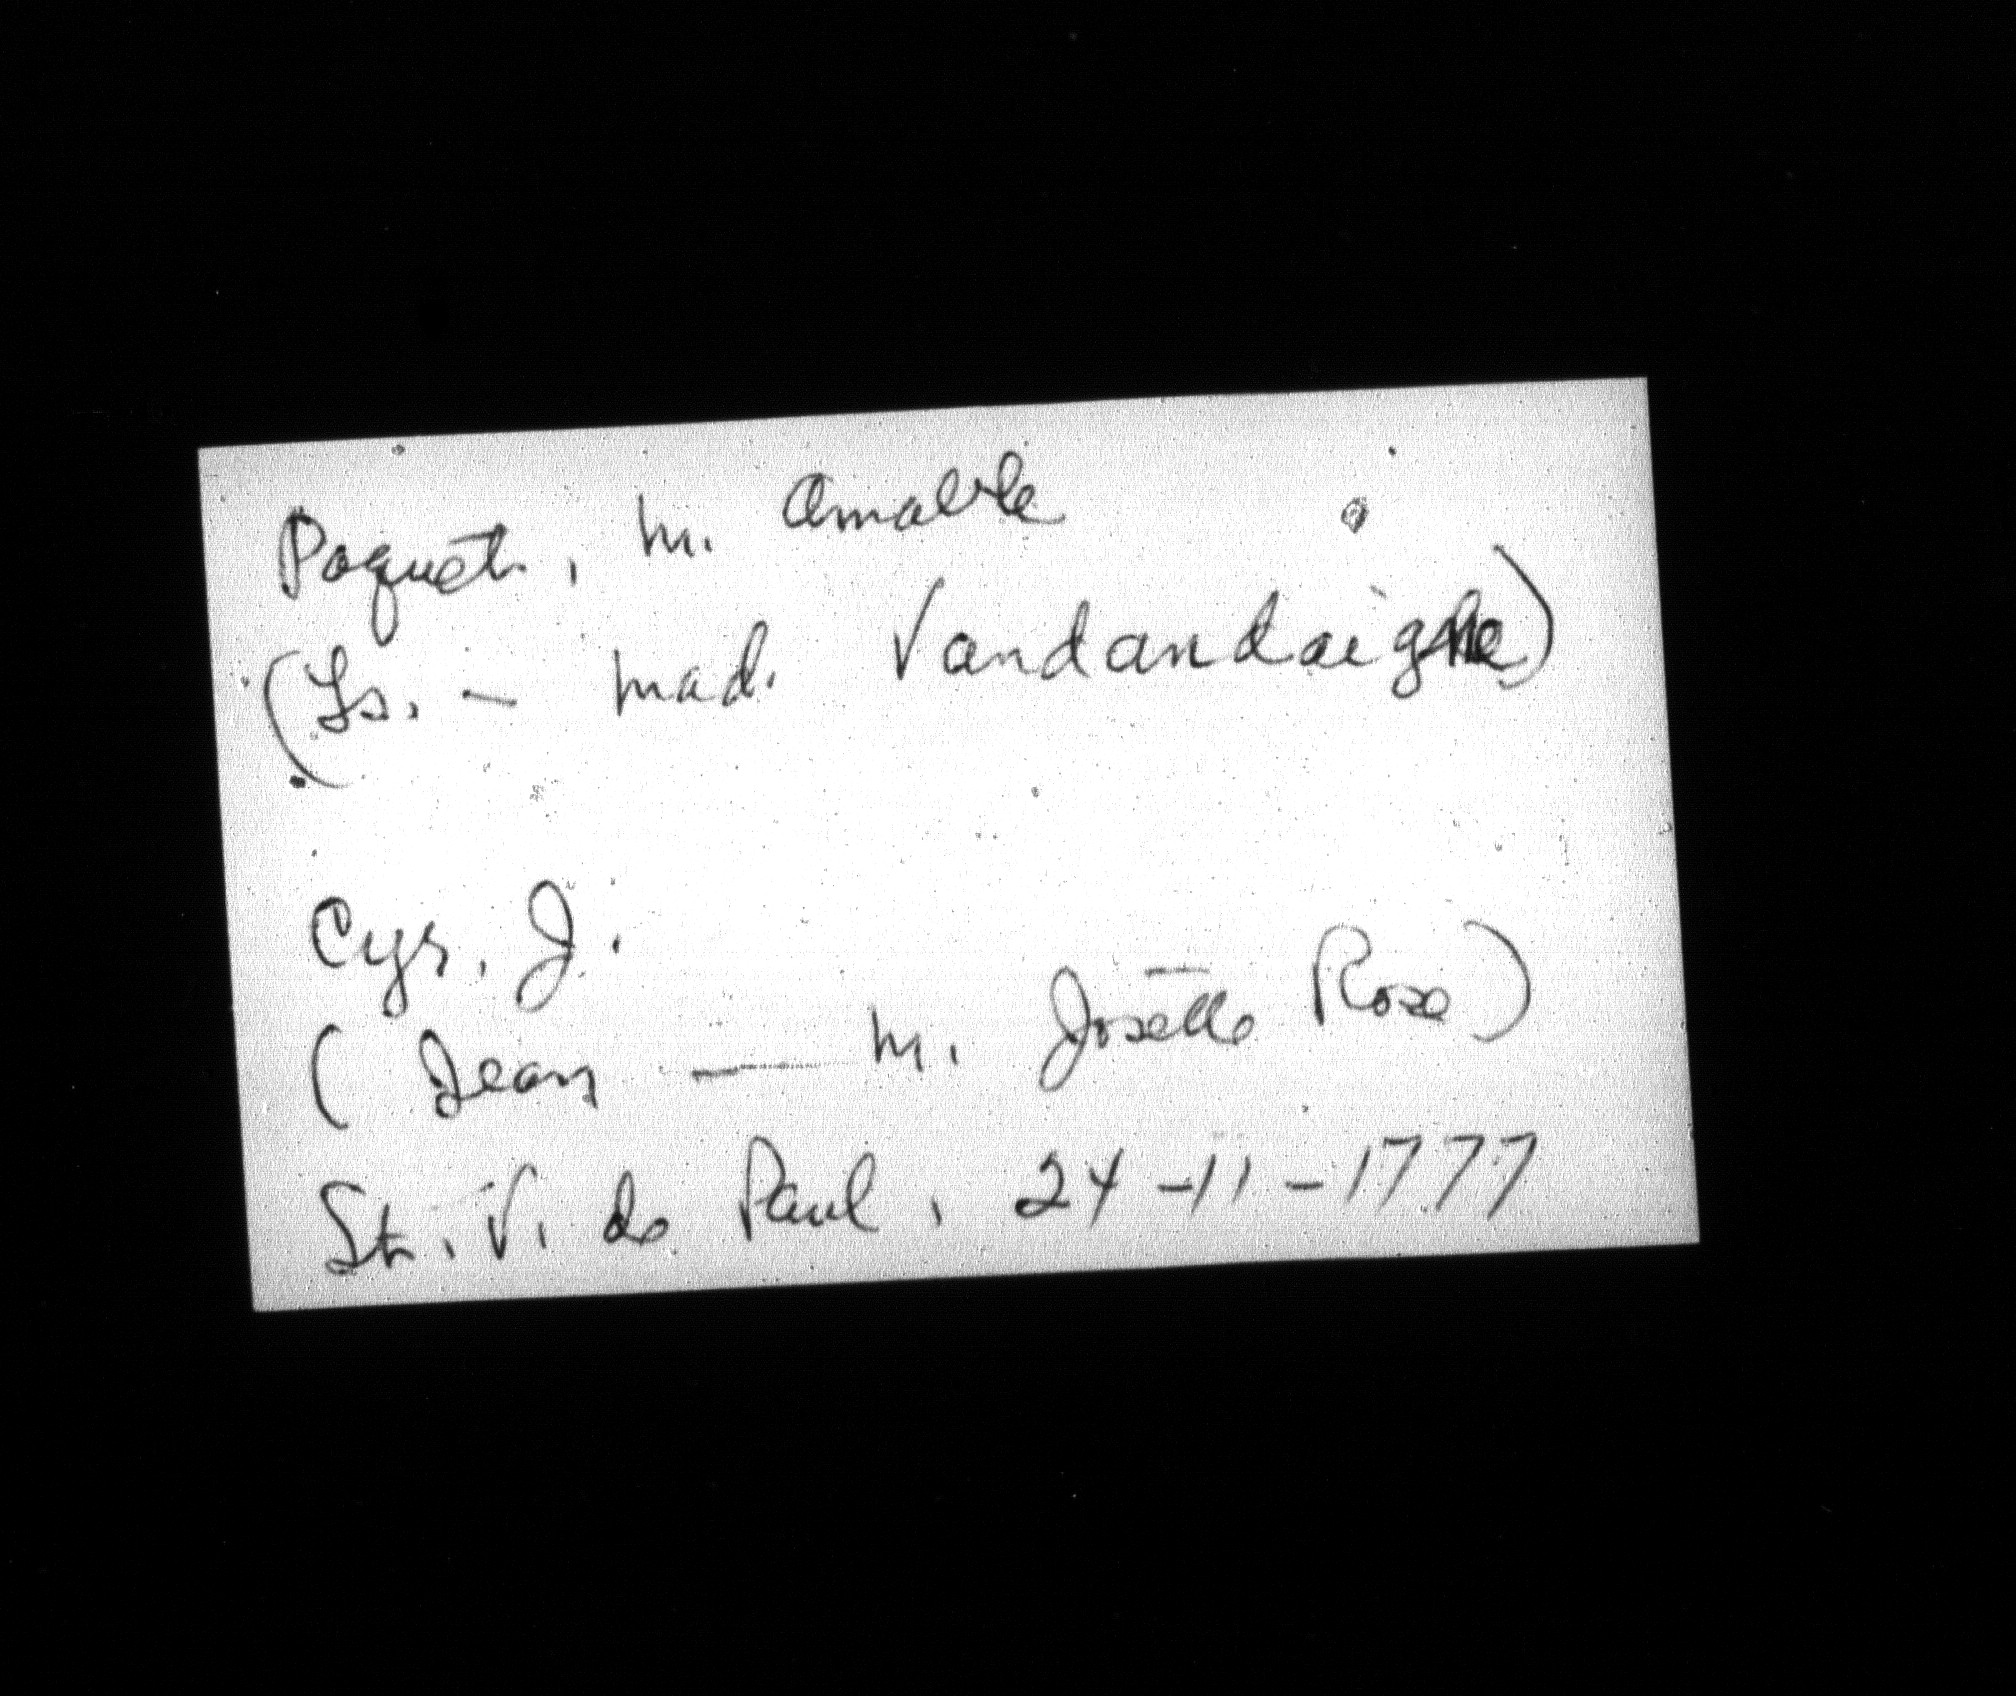 Paquet, M. Amable
(Ls. - Mad. Vandandaigne)
Cyr, J.
(Jean — M. Josette Rose)
St. V. de Paul, 24-11-1777